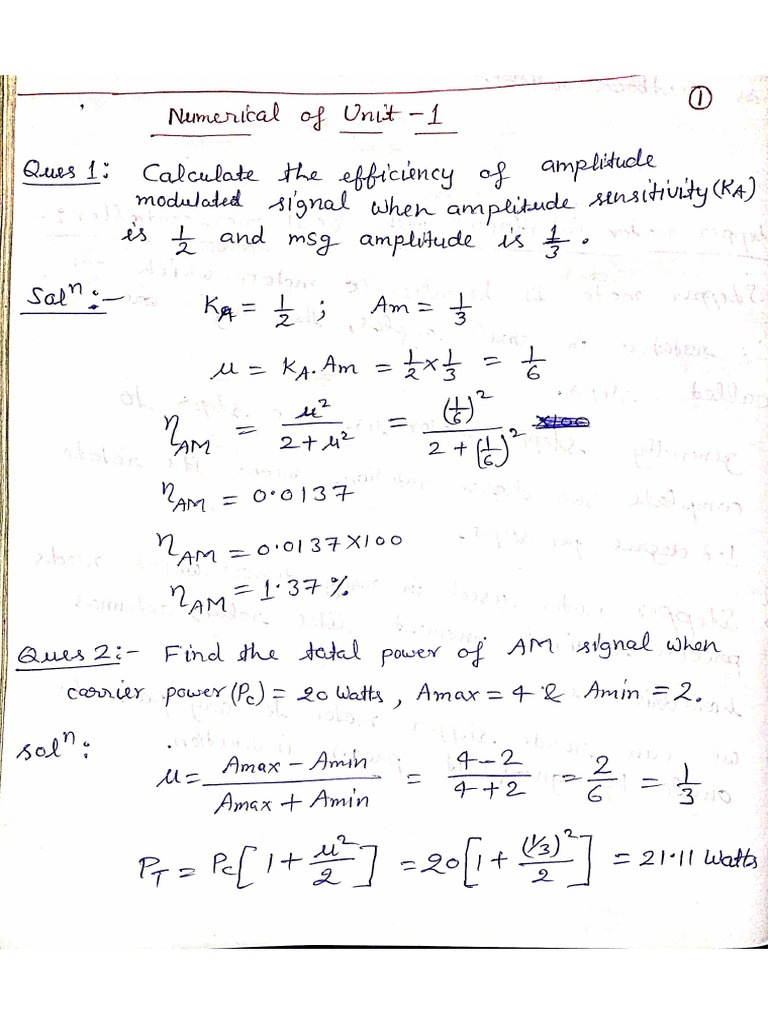 ①
Numerical of Unit - 1
Ques 1: Calculate the efficiency of amplitude
modulated signal when amplitude sensitivity (KA)
is 1/2 and msg amplitude is 1/3.
Solⁿ:- KA = 1/2 ; Am = 1/3
μ = KA. Am = 1/2 × 1/3 = 1/6
ηAM = μ²/(2 + μ²) = (1/6)²/(2 + (1/6)²)
ηAM = 0.0137
ηAM = 0.0137 × 100
ηAM = 1.37 %
Ques 2:- Find the total power of AM signal when
carrier power (Pc) = 20 Watts, Amax = 4 & Amin = 2.
Solⁿ:
μ = (Amax - Amin)/(Amax + Amin) = (4 - 2)/(4 + 2) = 2/6 = 1/3
PT = Pc[1 + μ²/2] = 20[1 + (1/3)²/2] = 21.11 Watts